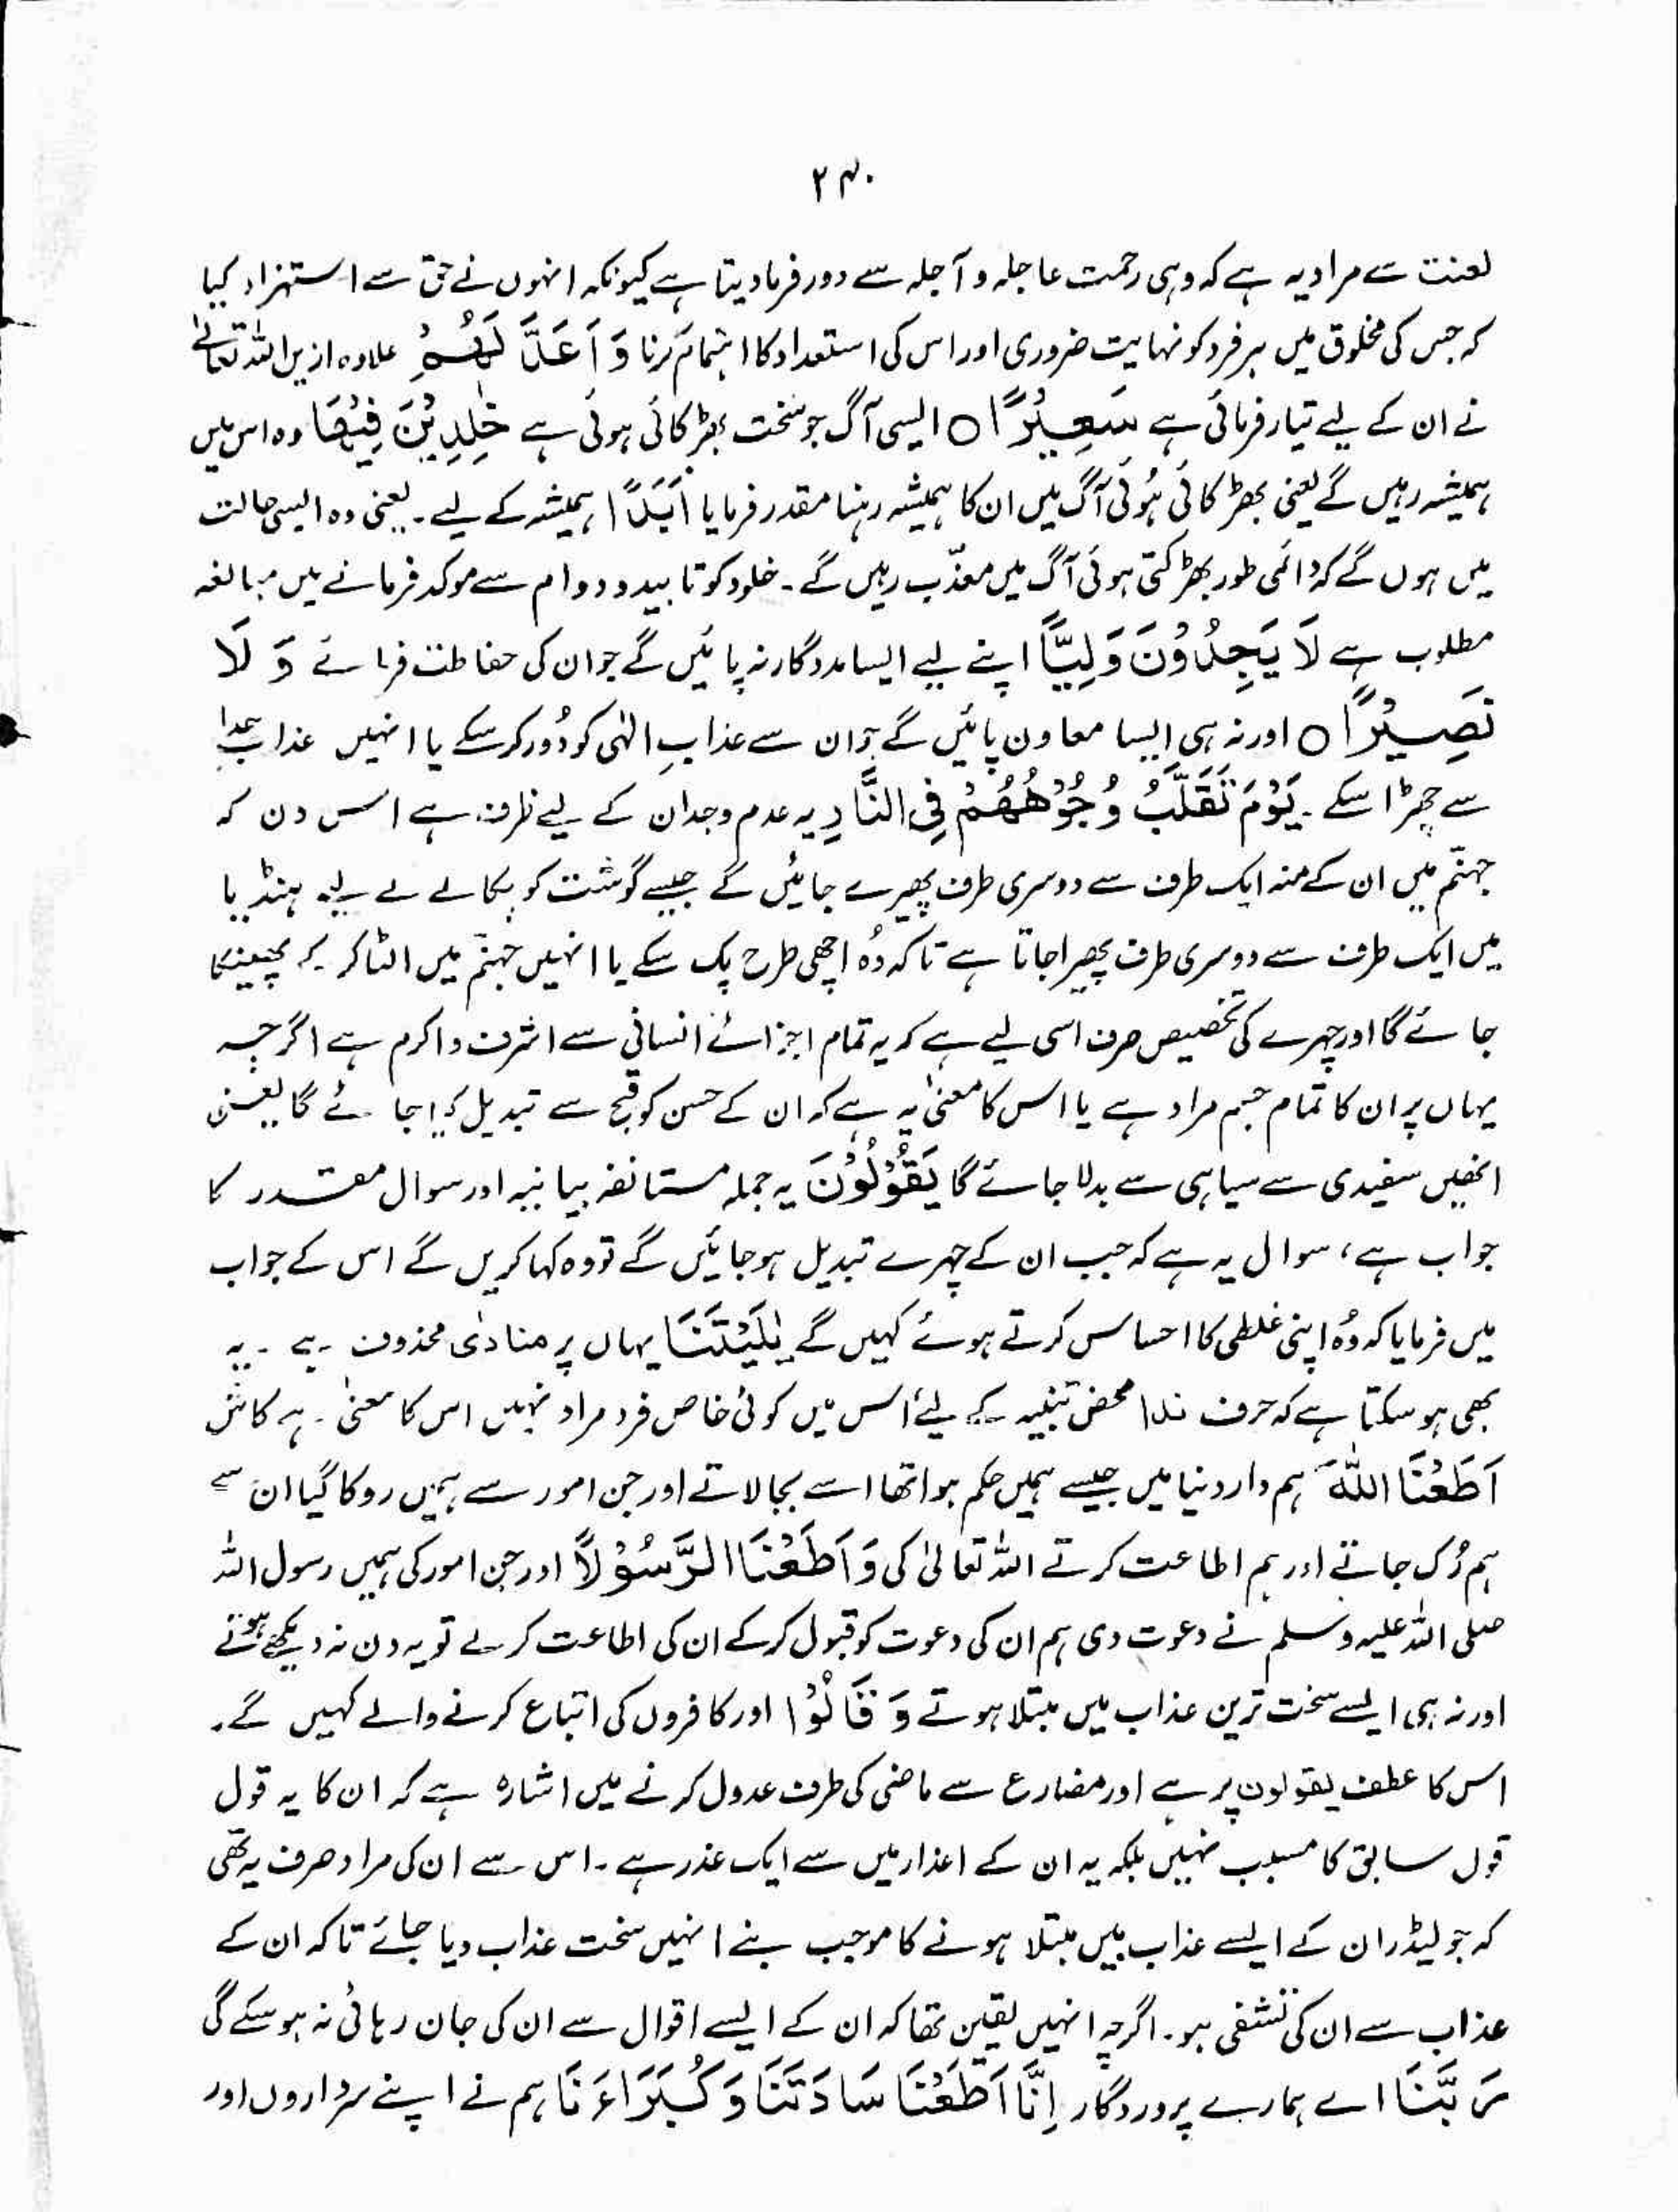 ۲۴۰
لعنت سے مراد یہ ہے کہ وہی رحمت عاجلہ و آجلہ سے دور فرما دیتا ہے کیونکہ انہوں نے حق سے استہزاء کیا
کہ جس کی مخلوق میں ہر فرد کو نہایت ضروری اور اس کی استعداد کا اہتمام کرنا وَ اَعَدَّ لَهُمْ علاوہ ازیں اللہ تعالیٰ
نے ان کے لیے تیار فرمائی ہے سَعِيْرًا ○ ایسی آگ جو سخت بھڑکائی ہوئی ہے خٰلِدِيْنَ فِيْهَا وہ اس میں
ہمیشہ رہیں گے یعنی بھڑکائی ہوئی آگ میں ان کا ہمیشہ رہنا مقدر فرمایا اَبَدًا ہمیشہ کے لیے۔ یعنی وہ ایسی حالت
میں ہوں گے کہ دائمی طور بھڑکتی ہوئی آگ میں معذّب رہیں گے۔ خلود کو تابید و دوام سے موکد فرمانے میں مبالغہ
مطلوب ہے لَا يَجِدُوْنَ وَلِيًّا اپنے لیے ایسا مددگار نہ پائیں گے جو ان کی حفاظت فرمائے وَ لَا
نَصِيْرًا ○ اور نہ ہی ایسا معاون پائیں گے جو ان سے عذابِ الٰہی کو دُور کر سکے یا انہیں عذاب خدا
سے چھڑا سکے۔ يَوْمَ تُقَلَّبُ وُجُوْهُهُمْ فِي النَّارِ یہ عدم وجدان کے لیے ظرف ہے اس دن کہ
جہنّم میں ان کے منہ ایک طرف سے دوسری طرف پھیرے جائیں گے جیسے گوشت کو پکانے کے لیے ہنڈیا
میں ایک طرف سے دوسری طرف پھیرا جاتا ہے تاکہ وُہ اچھی طرح پک سکے یا انہیں جہنّم میں الٹا کر کے پھینکا
جائے گا اور چہرے کی تخصیص صرف اسی لیے ہے کہ یہ تمام اجزائے انسانی سے اشرف و اکرم ہے اگرچہ
یہاں پر ان کا تمام جسم مراد ہے یا اس کا معنیٰ یہ ہے کہ ان کے حسن کو قبح سے تبدیل کیا جائے گا یعنی
انھیں سفیدی سے سیاہی سے بدلا جائے گا يَقُوْلُوْنَ یہ جملہ مستانفہ بیانیہ اور سوال مقدر کا
جواب ہے، سوال یہ ہے کہ جب ان کے چہرے تبدیل ہو جائیں گے تو وہ کہا کریں گے اس کے جواب
میں فرمایا کہ وُہ اپنی غلطی کا احساس کرتے ہوئے کہیں گے يٰلَيْتَنَا یہاں پر منادٰی محذوف ہے۔ یہ
بھی ہو سکتا ہے کہ حرف ندا محض تنبیہ کے لیے اس میں کوئی خاص فرد مراد نہیں اس کا معنیٰ ہے کاش
اَطَعْنَا اللّٰهَ ہم دار دنیا میں جیسے ہمیں حکم ہوا تھا اسے بجالاتے اور جن امور سے ہمیں روکا گیا ان سے
ہم رُک جاتے اور ہم اطاعت کرتے اللہ تعالیٰ کی وَ اَطَعْنَا الرَّسُوْلَا اور جن امور کی ہمیں رسول اللہ
صلی اللہ علیہ وسلم نے دعوت دی ہم ان کی دعوت کو قبول کر کے ان کی اطاعت کرتے تو یہ دن نہ دیکھے ہوتے
اور نہ ہی ایسے سخت ترین عذاب میں مبتلا ہوتے وَ قَالُوْا اور کافروں کی اتباع کرنے والے کہیں گے۔
اس کا عطف یقولون پر ہے اور مضارع سے ماضی کی طرف عدول کرنے میں اشارہ ہے کہ ان کا یہ قول
قول سابق کا مسبب نہیں بلکہ یہ ان کے اعذار میں سے ایک عذر ہے۔ اس سے ان کی مراد صرف یہ تھی
کہ جو لیڈر ان کے ایسے عذاب میں مبتلا ہونے کا موجب بنے انہیں سخت عذاب دیا جائے تاکہ ان کے
عذاب سے ان کی تشفی ہو۔ اگرچہ انہیں یقین تھا کہ ان کے ایسے اقوال سے ان کی جان رہائی نہ ہو سکے گی
رَبَّنَا اے ہمارے پروردگار اِنَّا اَطَعْنَا سَادَتَنَا وَ كُبَرَآءَنَا ہم نے اپنے سرداروں اور